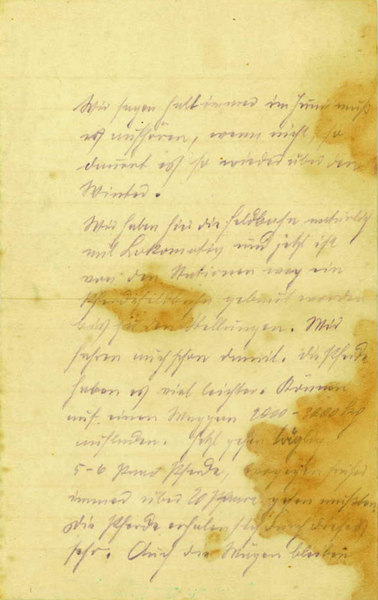 Wir sagen halt immer im Juni muß
es aufhören, wenn nicht, so
dauert es so wieder über den
Winter.
Wir haben hier die Feldbahn natürlich
mit Lokomotiv und jetzt ist
von den Stationen weg ein
Pferdefeldbahn gebaut worden
bis zu den Stellungen. Wir
fahren auch schon damit. Die Pferde
haben es viel leichter. Können
auf einen Waggon 2000-3000 Kg
aufladen. Jetzt gehen täglich
5-6 Paar Pferde,
immer über 20 Paare gehen mußten.
Die Pferde erholen sich durch dieses
sehr. Auch die Wägen bleiben